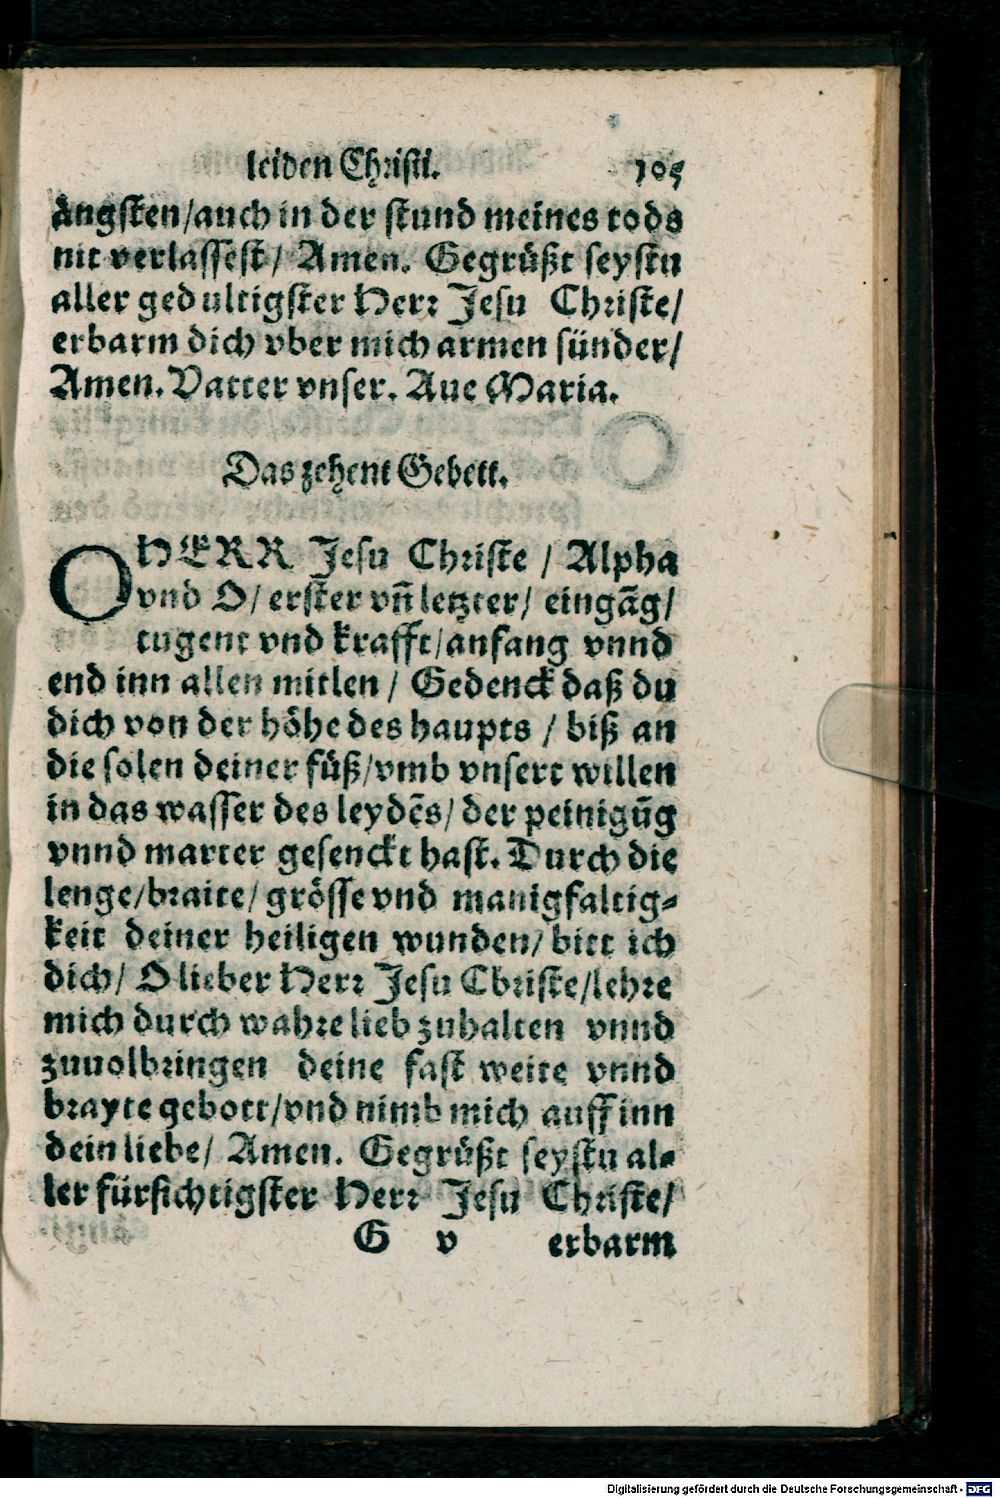 leiden Christi. 105
ängsten/auch in der stund meines tods
nit verlassest/ Amen. Gegrüßt seystu
aller gedultigster Herr Jesu Christe/
erbarm dich vber mich armen sünder/
Amen. Vatter vnser. Aue Maria.
Das zehent Gebett.
O HERR Jesu Christe / Alpha
vnd O/ erster vñ letzter/ eingãg/
tugent vnd krafft/anfang vnnd
end inn allen mitlen / Gedenck daß du
dich von der höhe des haupts / biß an
die solen deiner füß/vmb vnsert willen
in das wasser des leydẽs/ der peinigũg
vnnd marter gesenckt hast. Durch die
lenge/braite/ grösse vnd manigfaltig-
keit deiner heiligen wunden/ bitt ich
dich/ O lieber Herr Jesu Christe/lehre
mich durch wahre lieb zuhalten vnnd
zuuolbringen deine fast weite vnnd
brayte gebott/vnd nimb mich auff inn
dein liebe/ Amen. Gegrüßt seystu al-
ler fürsichtigster Herr Jesu Christe/
G v erbarm
Digitalisierung gefördert durch die Deutsche Forschungsgemeinschaft - DFG